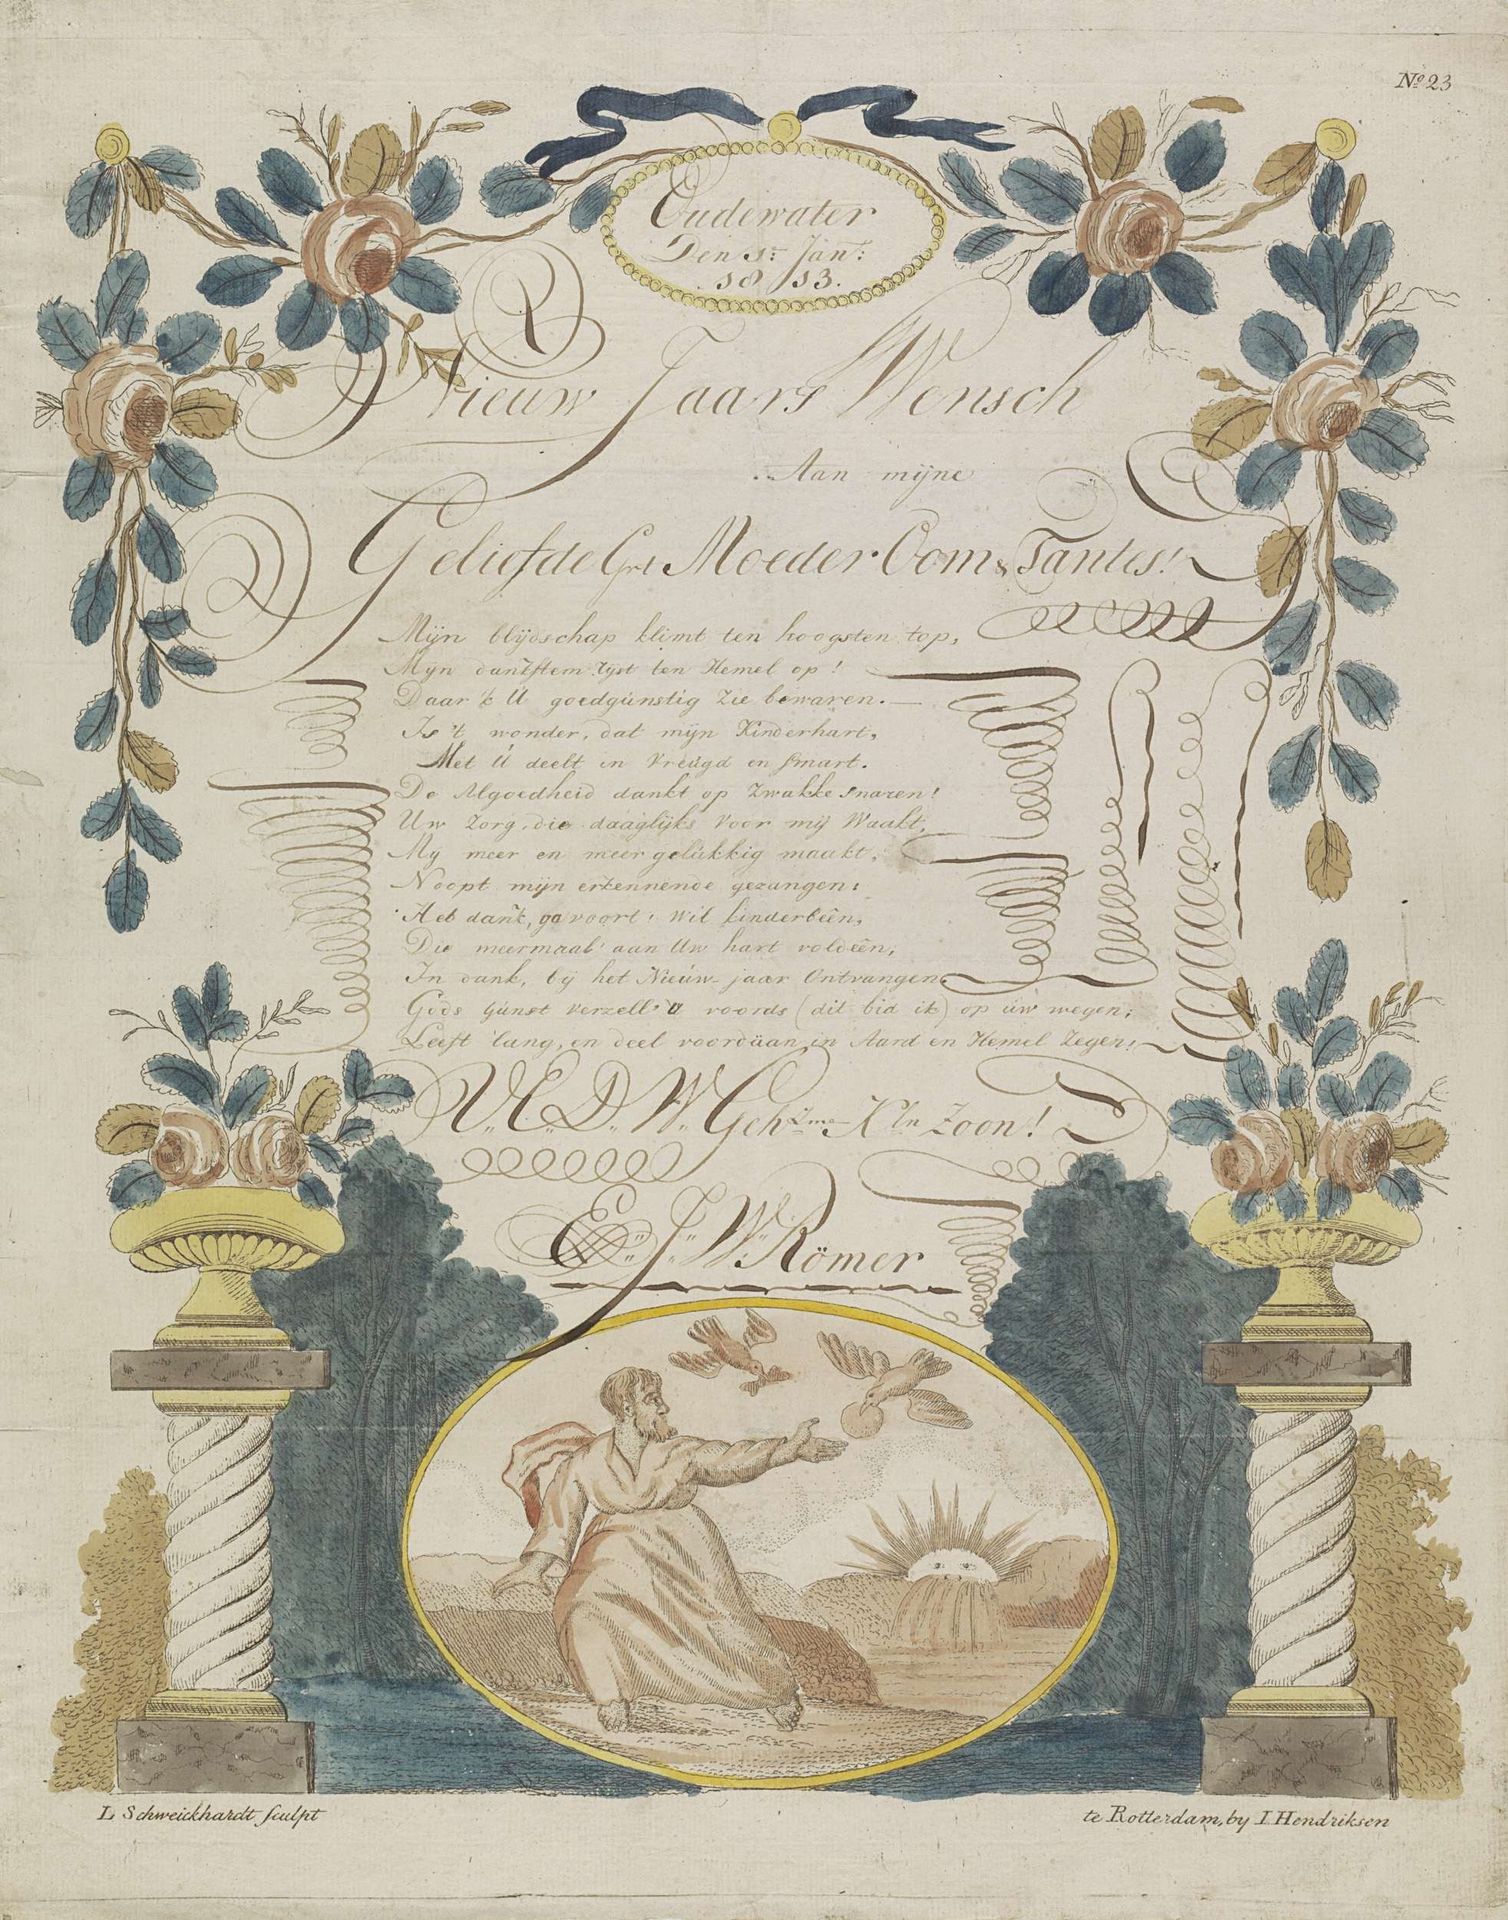 No 23
Oudewater
Den 1r Janr:
1813.
Nieuw Jaars Wensch
Aan mijne
Geliefde Grt Moeder Oom & Tantes!
Mijn blijdschap klimt ten hoogsten top,
Mijn dankstem rijst ten Hemel op!
Daar 'k U goedgunstig zie bewaren.
Is 't wonder, dat mijn Kinderhart,
Met U deelt in Vreugd en smart.
De Algoedheid dankt op zwakke snaren!
Uw zorg, die daaglijks voor mij Waakt,
My meer en meer gelukkig maakt,
Noopt mijn erkennende gezangen:
Heb dank, ga voort! wil kinderbeên,
Die meermaal aan Uw hart voldeên,
In dank, bij het Nieuw-jaar Ontvangen.
Gods gunst verzell' U voords (dit bid ik) op uw wegen,
Leeft lang, en deel voordaan in Aard en Hemel Zegen!
U. E. D. W. Gehzme Kln Zoon!
E. J. W. Römer
L Schweickhardt sculpt
te Rotterdam, by I Hendriksen